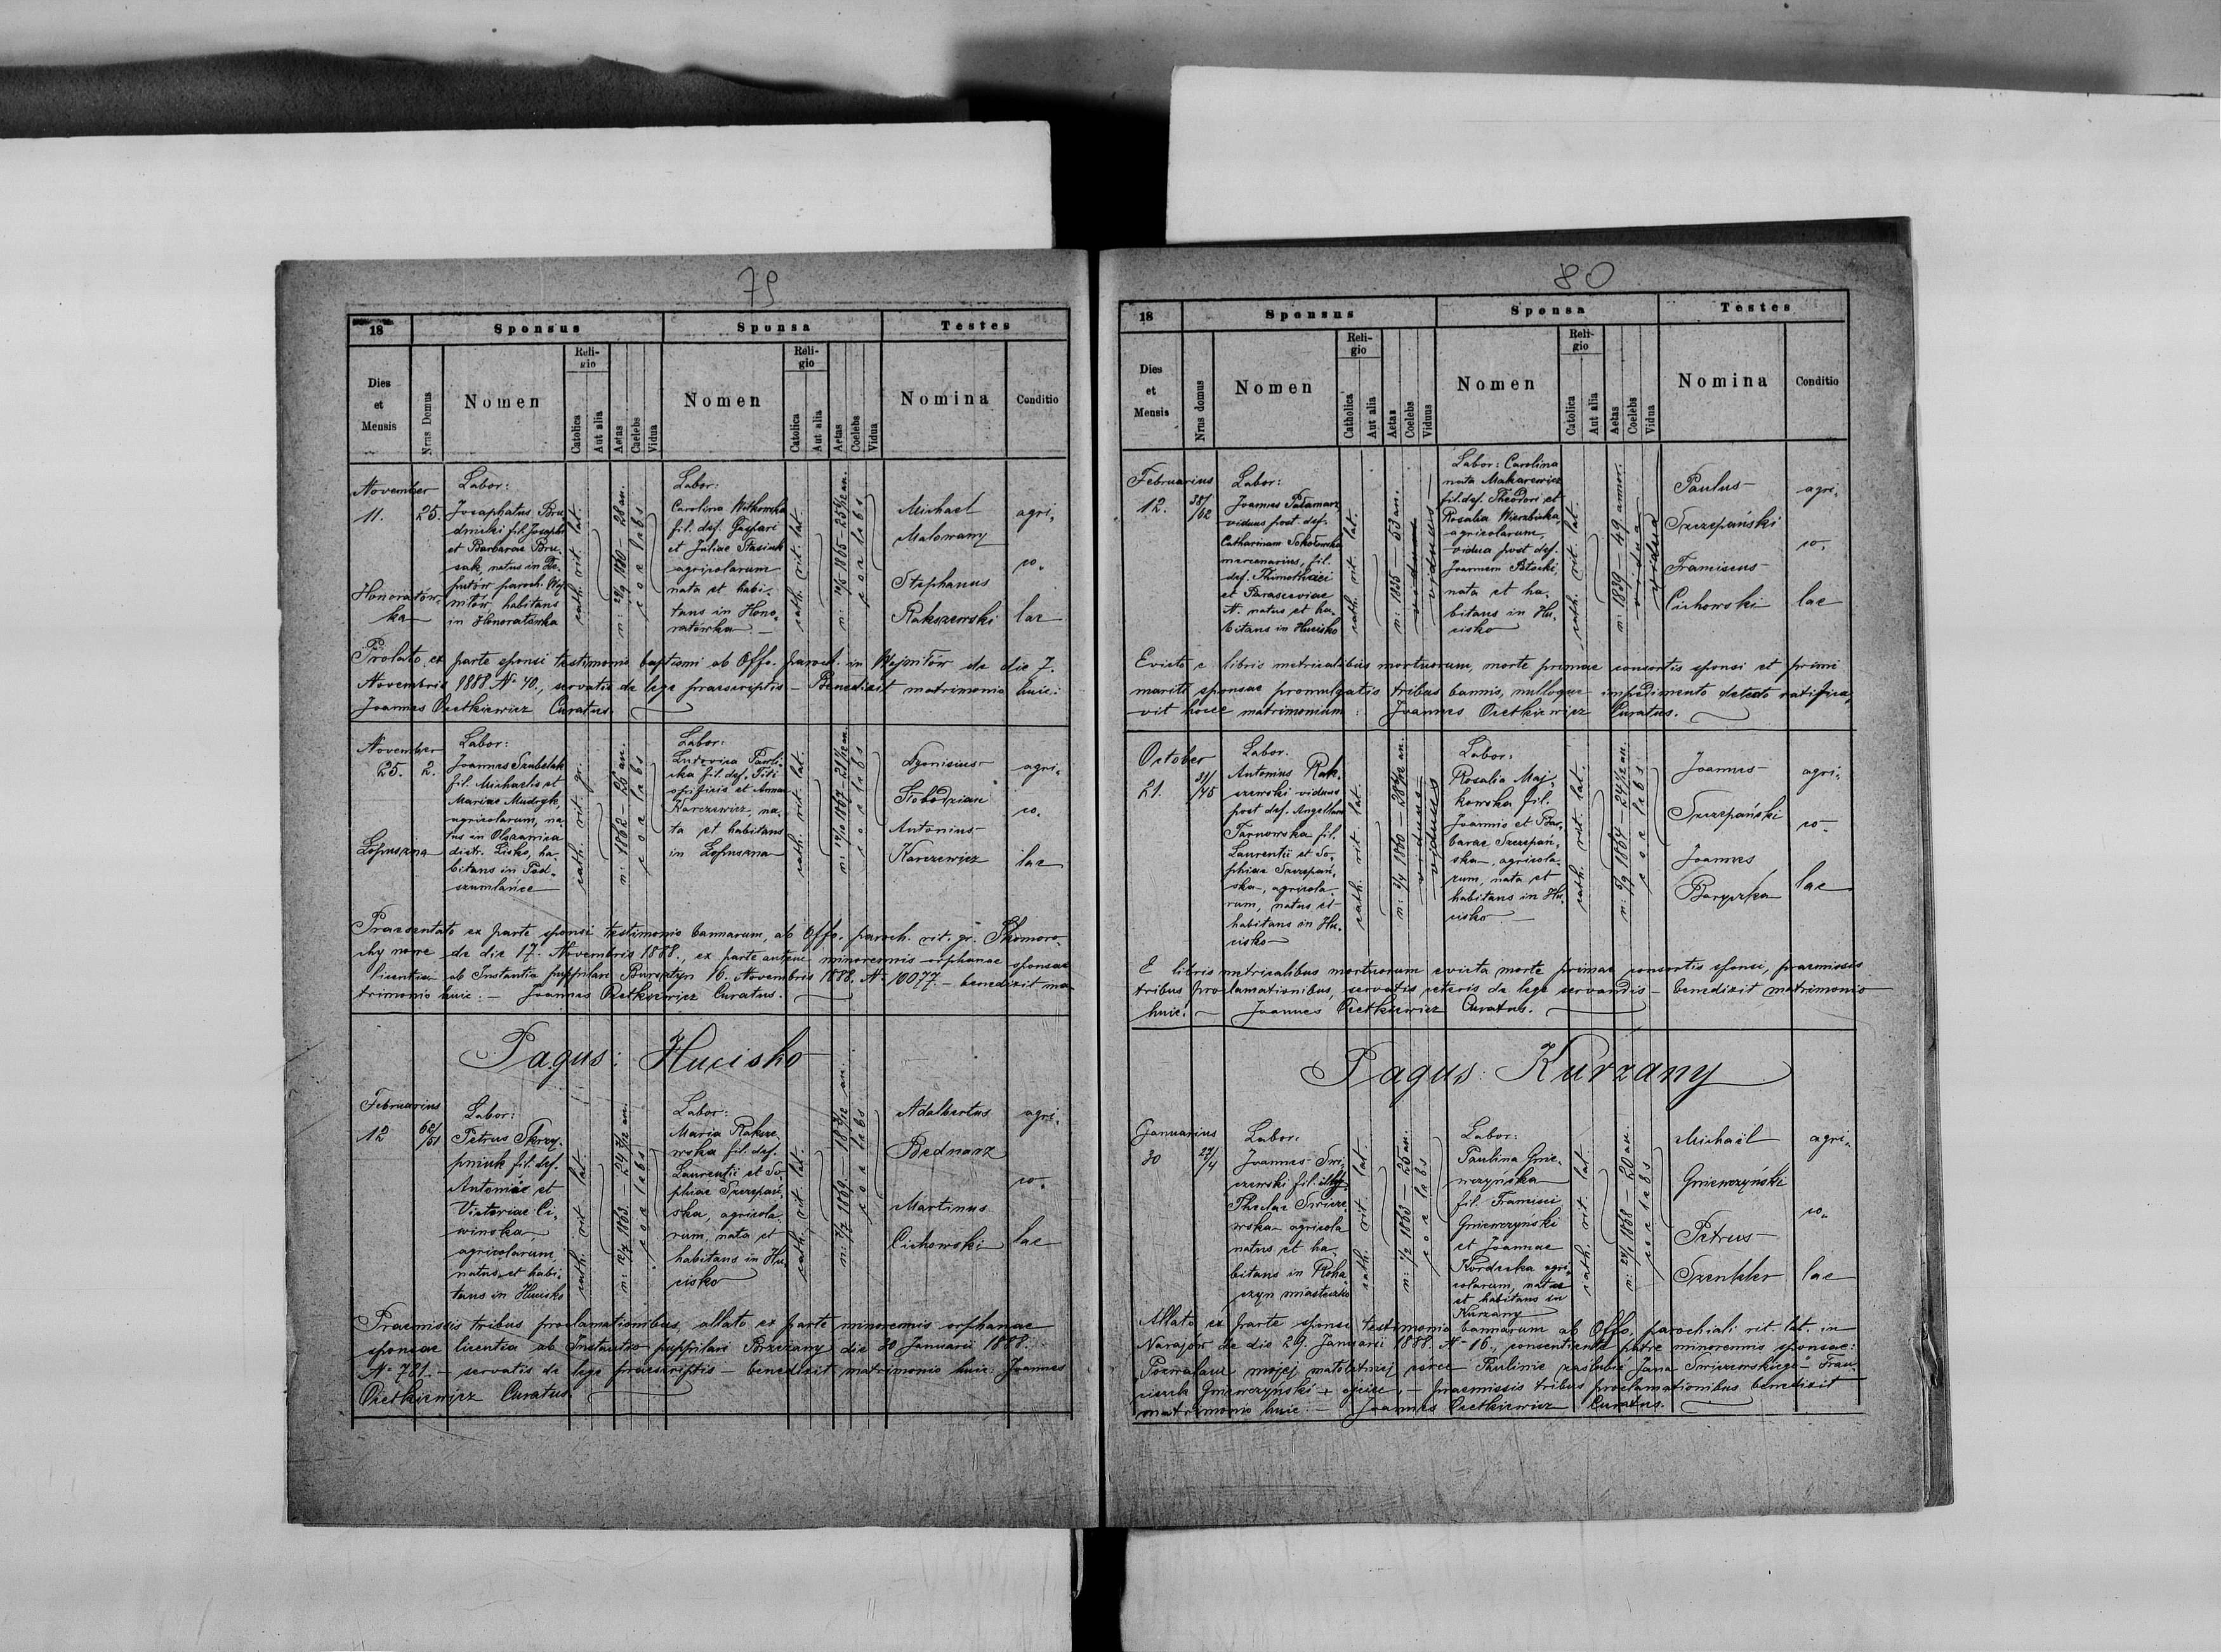 79
18
Sponsus
Sponsa
Testes
Dies
et
Mensis
Nrus Domus
Nomen
Reli-
gio
Catolica
Aut alia
Aetas
Caelebs
Vidua
Nomen
Reli-
gio
Catolica
Aut alia
Aetas
Coelebs
Vidua
Nomina
Conditio
November
11.
Honoratów-
ka
25.
Labor:
Josaphatus Bru-
dnicki fil. Josephi
et Barbarae Bru-
sak, natus in
paroch. Woj-
niłów, habitans
in Honoratówka
cath. rit. lat.
n: 24/9 1860 – 28 an.
coelebs
Labor:
Carolina Witkowska
fil. def. Gaspari
et Juliae Stasiuk
agricolarum
nata et habi-
tans in Hono-
ratówka
cath. rit. lat.
coelebs
Michael
Malowany
Stephanus
Rakszewski
agri-
co-
lae
Prolato ex parte sponsi testimonio baptismi ab Offo. paroch. in Wojniłów de die 7.
Novembris 1888. No 40., servatis de lege praescriptis – Benedixit matrimonio huic:
Joannes Oćetkiewicz Curatus.
November
25.
Łopuszna
2.
Labor:
Joannes Szubelak
fil. Michaelis et
Mariae Mudryk
agricolarum, na-
tus in Olszanica
distr. Lisko, ha-
bitans in Pod-
szumlańce
cath. rit. gr.
n: 1862 – 26 an.
coelebs
Labor:
Ludovica Pawli-
cka fil. def. Titi
opificis et Annae
Karczewicz, na-
ta et habitans
in Łopuszna
cath. rit. lat.
coelebs
Dyonisius
Słobodzian
Antonius
Karczewicz
agri-
co-
lae
Praesentato ex parte sponsi testimonio bannorum, ab Offo. paroch. rit. gr. Skomoro-
chy nowe de die 17. Novembris 1888., ex parte autem minorennis orphanae sponsae
licentia ab Instantia puppilari Bursztyn 16. Novembris 1888. No 10077. – benedixit ma-
trimonio huic: – Joannes Oćetkiewicz Curatus.
Pagus: Hucisko
Februarius
12
62/51
Labor:
Petrus Skrzy-
pniuk fil. def.
Antonii et
Victoriae Ci-
winska
agricolarum,
natus et habi-
tans in Hucisko
cath. rit. lat.
coelebs
Labor:
Maria Raksze-
wska fil. def.
Laurentii et So-
phiae Szczepań-
ska, agricola-
rum, nata et
habitans in Hu-
cisko
cath. rit. lat.
coelebs
Adalbertus
Bednarz
Martinus
Cichowski
agri-
co-
lae
Praemissis tribus proclamationibus, allato ex parte minorennis orphanae
sponsae licentia ab Instantia puppilari Brzeżany die 30 Januarii 1888.
No 781. – servatis de lege praescriptis – benedixit matrimonio huic: Joannes
Oćetkiewicz Curatus.
80
18
Sponsus
Sponsa
Testes
Dies
et
Mensis
Nrus domus
Nomen
Reli-
gio
Catholica
Aut alia
Aetas
Coelebs
Viduus
Nomen
Reli-
gio
Catolica
Aut alia
Aetas
Coelebs
Vidua
Nomina
Conditio
Februarius
12.
38/62
Labor:
Joannes Pałamarz
viduus post def.
Catharinam Sokołowska
mercenarius, fil.
def. Thimothaei
et Parasceviae
N. natus et ha-
bitans in Hucisko
cath. rit. lat.
n: 1835 – 53 an.
viduus
viduus
Labor: Carolina
nata Makarewicz
fil. def. Theodori et
Rosalia Wierzbicka
agricolarum,
vidua post def.
Joannem Potocki,
nata et ha-
bitans in Hu-
cisko
cath. rit. lat.
n: 1839 – 49 annor.
vidua
vidua
Paulus
Szczepański
Franciscus
Cichowski
agri-
co-
lae
Evicto e libris metricalibus mortuorum, morte primae consortis sponsi et primi
mariti sponsae promulgatis tribus bannis, nulloque impedimento detecto ratifica-
vit hocce matrimonium: Joannes Oćetkiewicz Curatus.
October
21.
31/75
Labor.
Antonius Rak-
szewski viduus
post def. Angellam
Tarnowska fil.
Laurentii et So-
phiae Szczepań-
ska, agricola-
rum, natus et
habitans in Hu-
cisko
cath. rit. lat.
viduus
viduus
Labor:
Rosalia Maj-
kowska fil.
Joannis et Bar-
barae Szczepań-
ska, agricola-
rum, nata et
habitans in Hu-
cisko
cath. rit. lat.
coelebs
Joannes
Szczepański
Joannes
Baryczka
agri-
co-
lae
E libris metricalibus mortuorum evicta morte primae consortis sponsi, praemissis
tribus proclamationibus, servatis ceteris de lege servandis – benedixit matrimonio
huic. – Joannes Oćetkiewicz Curatus.
Pagus: Kurzany
Januarius
30
27/4
Labor:
Joannes Swi-
czewski fil. illeg.
Theclae Swicze-
wska agricola
natus et ha-
bitans in Roha-
czyn miasteczko
cath. rit. lat.
n: 7/2 1863 – 25 an.
coelebs
Labor:
Paulina Gnie-
wczyńska
fil. Francisci
Gniewczynski
et Joannae
Kordecka agri-
colarum, nata
et habitans in
Kurzany
cath. rit. lat.
coelebs
Michaël
Gniewczyński
Petrus
Szenkler
agri-
co-
lae
Allato ex parte sponsi testimonio bannorum ab Offo. parochiali rit. lat. in
Narajów de die 29. Januarii 1888. No 16., consentiente patre minorennis sponsae:
Pozwalam mojej małoletniej córce Paulinie zaślubić Jana Swiczewskiego – Fran-
ciszek Gniewczyński + ojciec, – praemissis tribus proclamationibus benedixit
matrimonio huic: – Joannes Oćetkiewicz Curatus.